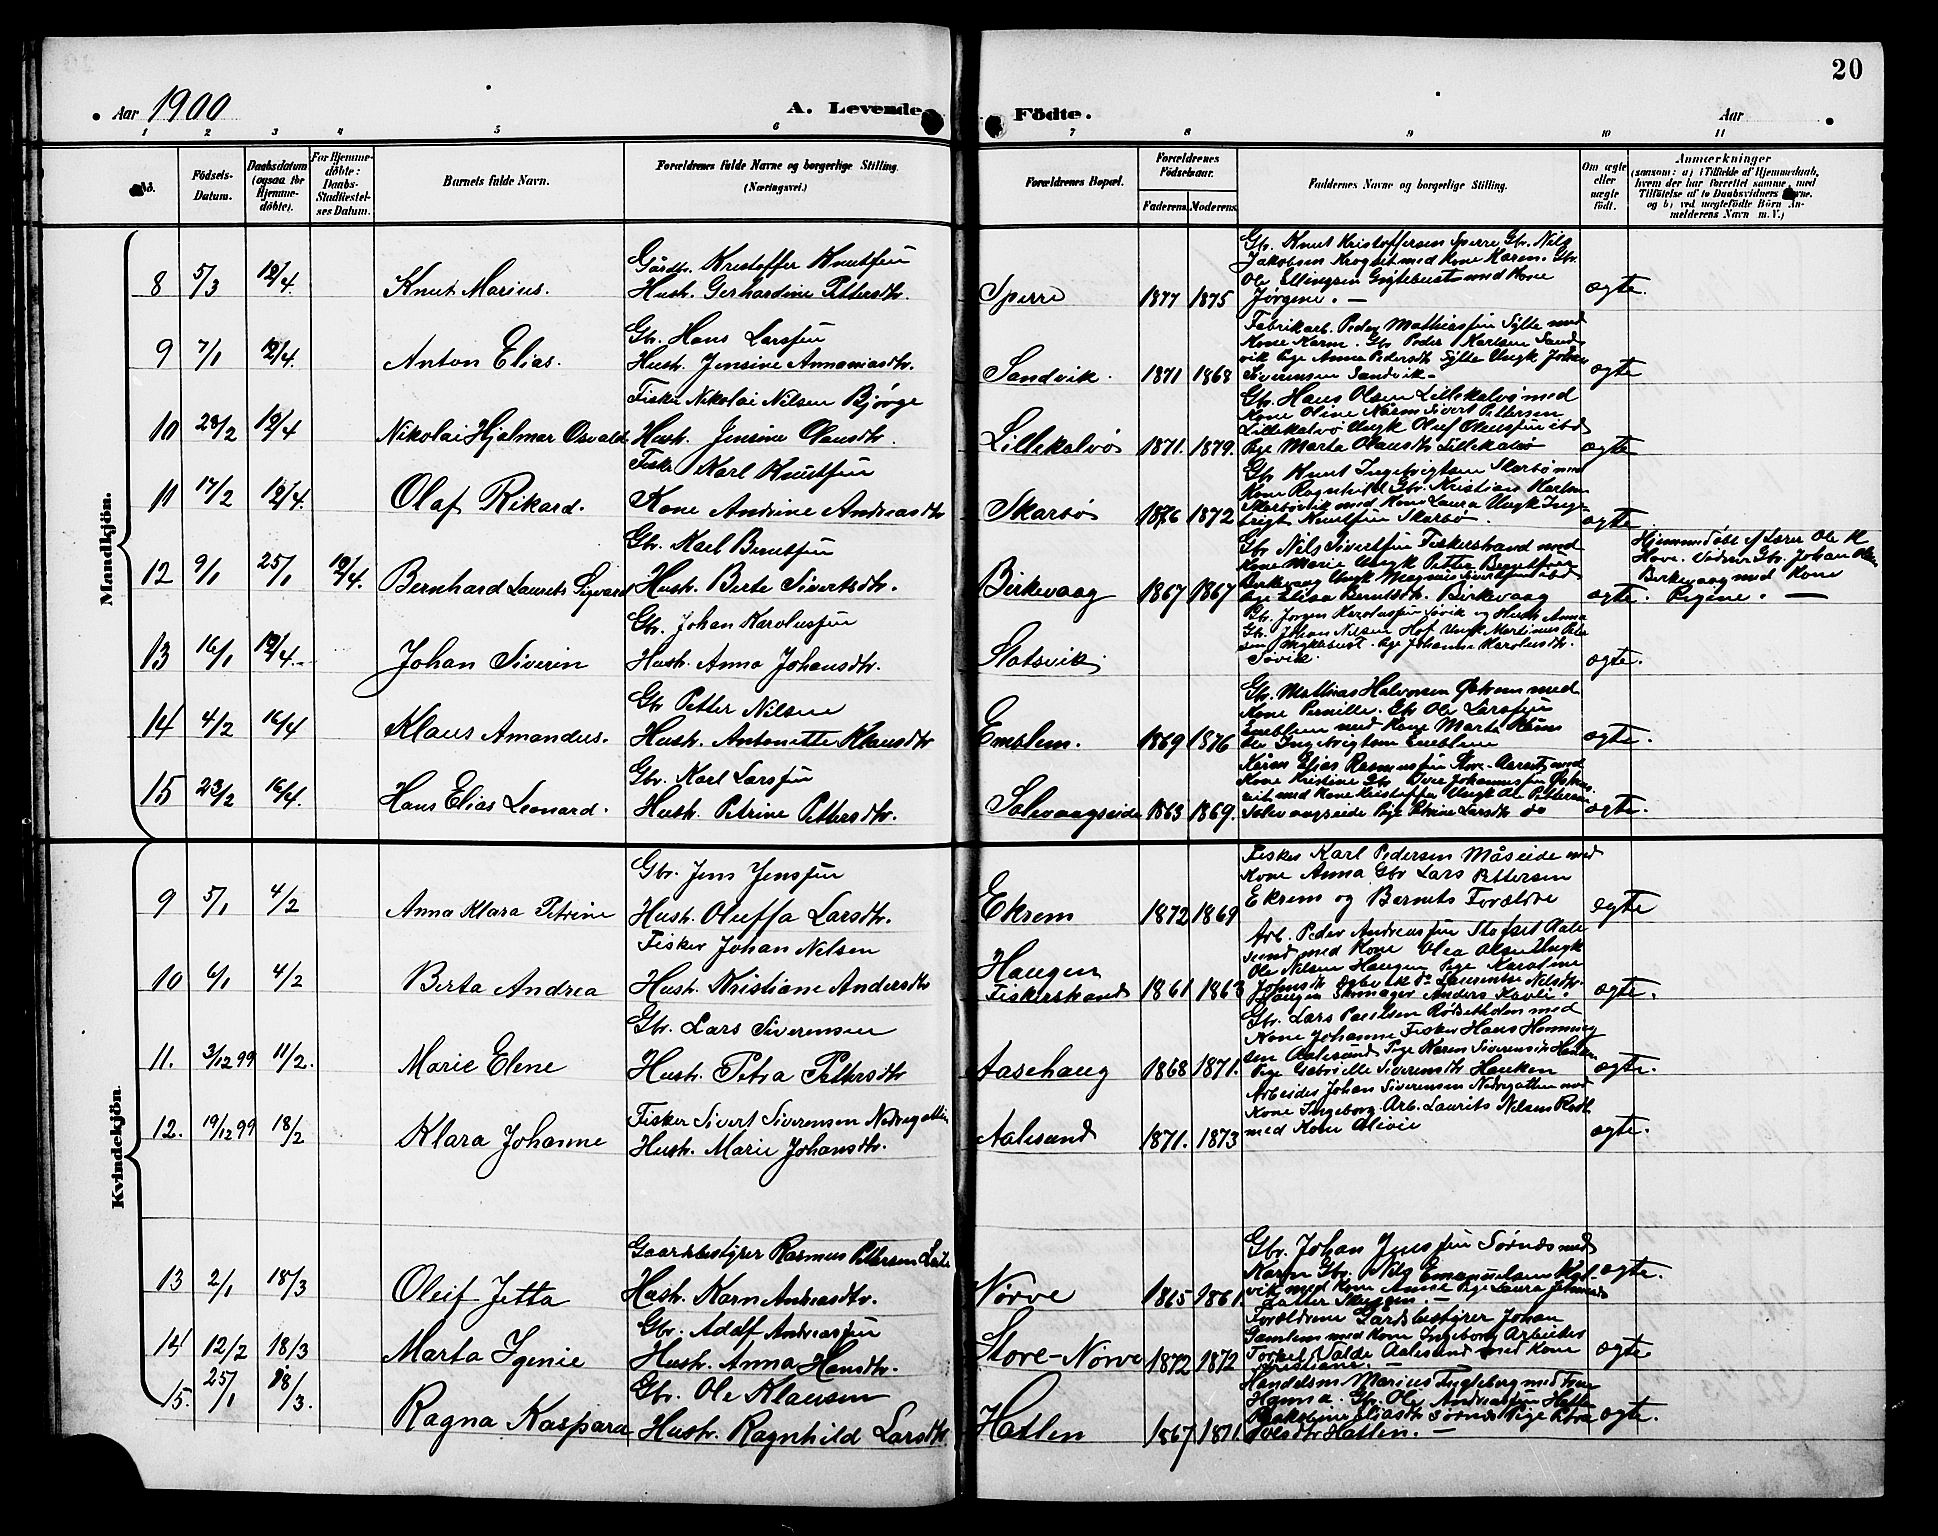 20
Aar 1900
A. Levende Födte.
Aar
1 2 3 4 5 6 7 8 9 10 11
No.
Födsels-Datum.
Daabsdatum (ogsaa for Hjemme-döbte).
For Hjemme-döbte: Daabs-Stadfæstel-ses Datum.
Barnets fulde Navn.
Forældrenes fulde Navne og borgerlige Stilling. (Næringsvei.)
Forældrenes Bopæl.
Forældrenes Födselsaar.
Faderens. Moderens.
Faddernes Navne og borgerlige Stilling.
Om ægte eller uægte födt.
Anmærkninger
(saasom: a) i Tilfælde af Hjemmedaab, hvem der har forrettet samme, med Tilföielse af to Daabsvidners Navne. og b) ved uægtefödte Börn An-melderens Navn m. V.)
Mandkjön.
8 5/3 12/4. Knut Marius. Gårdb. Kristoffer Knutsen Hust. Gerhardine Pettersdtr. Sperre 1877 1875 ægte.
Gbr. Knut Kristoffersen Sperre Gbr. Nils
Jakobsen Krogset med Kone Karen. Gbr.
Ole Ellingsen med Kone
Jørgene. —
9 7/1 12/4. Anton Elias. Gbr. Hans Larssen Hust. Jensine Annaniasdtr. Sandvik. 1871 1868 ægte
Fabrikarb. Peder Mathiassen Sylte med
Kone Karen. Gbr Peder Karlsen Sand
vik Pige Anna Pedersdtr Sylte Ungk Johan
Siverinsen Sandvik –
10 23/2 12/4 Nikolai Hjalmar Osvald Fisker Nikolai Nilsen Bjørge Hust. Jensine Olausdtr. Lillekalvø 1871. 1879. ægte
Gbr. Hans Olsen Lillekalvø med
Kone Oline Sivert Pettersen
Lillekalvø Ungk Oluf Knutsen ibd
Pige Marta Olausdtr Lillekalvø
11 17/2 12/4. Olaf Rikard. Fisker Karl Knutsen Kone Andrine Andreasdtr Skarbø 1876 1872 ægte
Gbr. Knut Ingebrigtsen Skarbø med
Kone Ragnhild Gbr. Kristian Karlsen
Skarbøvik med Kone Laura Ungk Inge-
brigt Knutsen Skarbø.
12 9/1 25/1 12/4. Bernhard Laurits Sigvard Gbr. Karl Berntsen Hust. Berte Sivertsdtr. Birkevaag 1867 1867 ægte.
Gbr Nils Sivertsen Fiskerstrand med
Kone Marie Ungk Petter Berntsen
Birkevaag Ungk Magnus Sivertsen ibd
Pige Elisa Berntsdtr. Birkevaag
Hjemmedøbt af Lærer Ole K
Hove. Vidner Gbr. Johan Olsen
Birkevaag med Kone
Regine. —
13 16/1 12/4. Johan Siverin Gbr. Johan Karolussen Hust. Anna Johansdtr. Slatsvik. ægte.
Gbr. Jørgen Karolussen Søvik og Hustr Anna
Gbr. Johan Nilsen Hof Ungk Martinus Peder
sen Myklebust. Pige Johanne Karolusdtr.
Søvik.
14 4/2 16/4 Klaus Amandus. Gbr Petter Nilsen Hust. Antonette Klausdtr Emblem. 1869 1876 ægte.
Gbr. Mathias Halvorsen med
Kone Pernille. Gbr Ole Larssen
Emblem med Kone Marta
Ole Ingebrigtsen Emblem
15 23/2 16/4. Hans Elias Leonard. Gbr. Karl Larssen Hust. Petrine Pettersdtr. Solevaagseide 1863 1869. ægte.
Elias Rasmussen med
Kone Kristine Gbr Iver Johannessen
med Kone Ungk Ole Pettersen
Solevaagseide Pige Petrine Larsdtr do
Kvindekjön.
9 5/1 4/2 Anna Klara Petrine Gbr. Jens Jenssen Hust. Oluffa Larsdtr. Ekrem 1872 1869 ægte
Fisker Karl Pedersen Måseide med
Kone Anna Gbr Lars Pettersen
Ekrem og Barnets Forældre
10 6/1 4/2 Berta Andrea Fisker Johan Nilsen Hust. Kristiane Andersdtr Haugen Fiskerstrand 1861 1863 ægte.
Arb. Peder Andreassen Stofset Aale
sund med Kone Olea Olsen Ungk
Ole Nilsen Haugen Pige Karoline
Johnsdtr Nilsdtr
Haugen Skomager Anders
11. 3/12 99 11/2. Marie Elene Gbr. Lars Siverensen Hust. Petra Pettersdtr Aasehaug 1868 1871. ægte.
Gbr. Lars Paulsen Rødsetholm med
Kone Johanne Fisker Hans Henning
sen Aalesund Pige Karen Siverensdtr
Pige Gabrielle Siverensdtr
12. 19/12 99 18/2 Klara Johanne Fisker Sivert Siverensen Nedregotten Hust. Marie Johansdtr. Aalesund 1871. 1873 ægte.
Arbeider Johan Siverensen Nedregotten med
Kone Ingeborg Arb. Laurits Nilsen
med Kone Olivie
13 2/1 18/3 Oleif Jetta Gaardbestyrer Rasmus Pettersen Hust. Karn Andreasdtr. Nørve 1865 1861. ægte.
Gbr. Johan Jenssen Sørnæs med
Karen Gbr. Nils Emanuelsen
vik med Kone Anne Pige Laura
14 12/2 18/3 Marta Igenie Gbr. Adolf Andreassen Hust. Anna Hansdtr. Store-Nørve 1872 1872 ægte
Forældrene Gårdsbestyrer Johan
Gamlem med Kone Ingeborg Arbeider
Torkel Valde Aalesund med Kone
Kristiane. —
15. 25/1 18/3. Ragna Kaspara Gbr. Ole Klausen Hust. Ragnhild Larsdtr Hatlen 1867 1871. ægte.
Handelsm. Marius med Frue
Hanna. Gbr. Ole Andreassen Hatlen
Eliasdtr Sørnes Pige
Hatlen. —